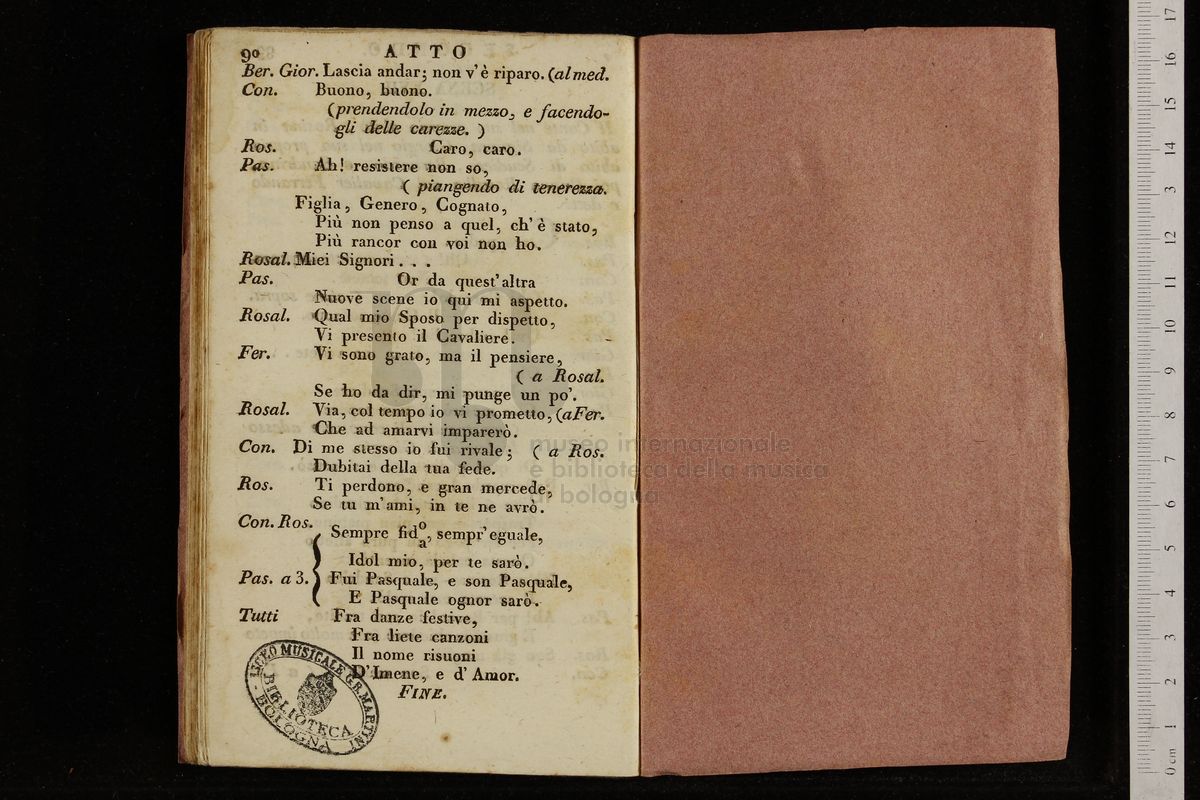 90 ATTO
Ber. Gior. Lascia andar; non v'è riparo. (al med.
Con. Buono, buono.
(prendendolo in mezzo, e facendo-
gli delle carezze. )
Ros. Caro, caro.
Pas. Ah! resistere non so,
( piangendo di tenerezza.
Figlia, Genero, Cognato,
Più non penso a quel, ch' è stato,
Più rancor con voi non ho.
Rosal. Miei Signori . . .
Pas. Or da quest' altra
Nuove scene io qui mi aspetto.
Rosal. Qual mio Sposo per dispetto,
Vi presento il Cavaliere.
Fer. Vi sono grato, ma il pensiere,
( a Rosal.
Se ho da dir, mi punge un po'.
Rosal. Via, col tempo io vi prometto, (a Fer.
Che ad amarvi imparerò.
Con. Di me stesso io fui rivale; ( a Ros.
Dubitai della tua fede.
Ros. Ti perdono, e gran mercede,
Se tu m'ami, in te ne avrò.
Con. Ros.
Sempre fid o/a, sempr' eguale,
Idol mio, per te sarò.
Pas. a 3. Fui Pasquale, e son Pasquale,
E Pasquale ognor sarò.
Tutti Fra danze festive,
Fra liete canzoni
Il nome risuoni
D' Imene, e d' Amor.
FINE.
LICEO MUSICALE GB. MARTINI
BIBLIOTECA
BOLOGNA
museo internazionale
e biblioteca della musica
di bologna
0 cm 1 2 3 4 5 6 7 8 9 10 11 12 13 14 15 16 17